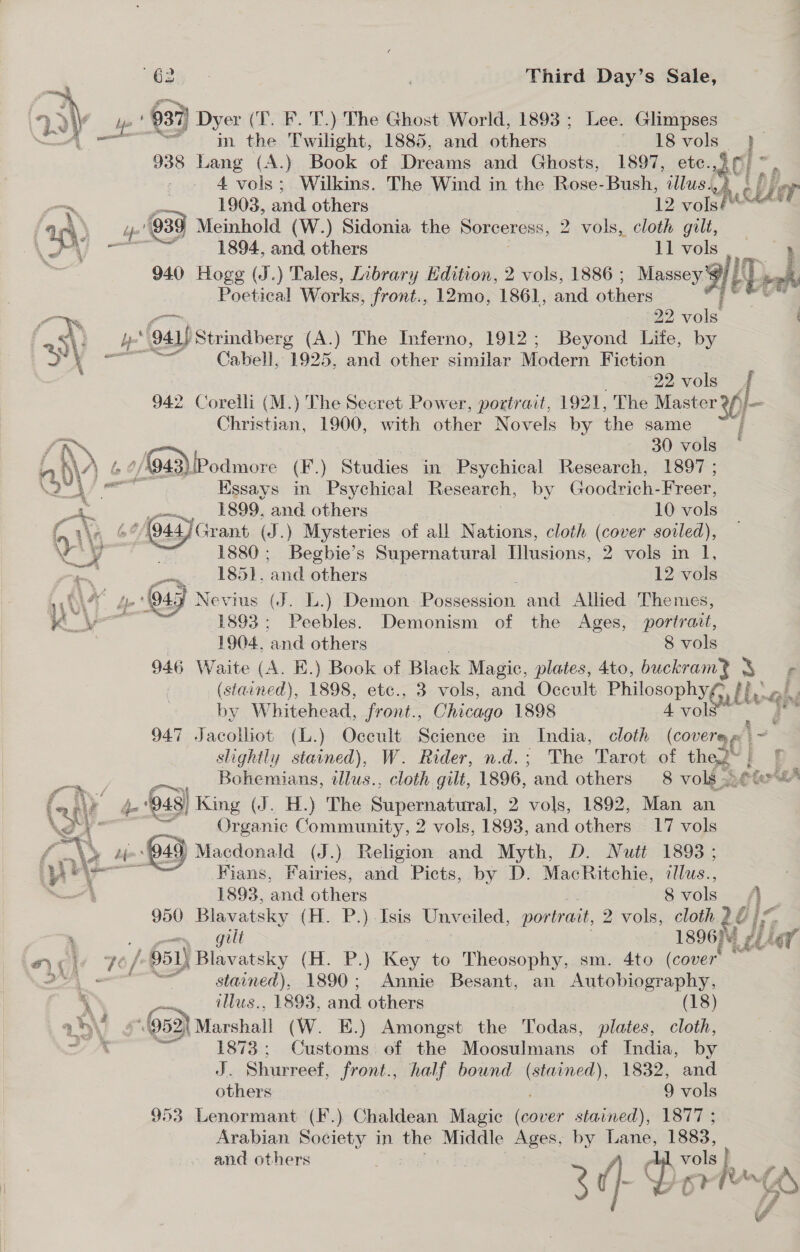 62 Third Day's Sale,
937 Dyer (T. F. T.) The Ghost World, 1893 ; Lee. Glimpses
in the Twilight, 1885, and others 18 vols
938 Lang (A.) Book of Dreams and Ghosts, 1897, etc.,
4 vols ; Wilkins. The Wind in the Rose-Bush, illus.,
1903, and others 12 vols
939 Meinhold (W.) Sidonia the Sorceress, 2 vols, cloth gilt,
1894, and others 11 vols
940 Hogg (J.) Tales, Library Edition, 2 vols, 1886 ; Massey
Poetical Works, front., 12mo, 1861, and others
22 vols
941 Strindberg (A.) The Inferno, 1912 ; Beyond Life, by
Cabell, 1925, and other similar Modern Fiction
22 vols
942 Corelli (M.) The Secret Power, portrait, 1921, The Master
Christian, 1900, with other Novels by the same
30 vols
943 Podmore (F.) Studies in Psychical Research, 1897 ;
Essays in Psychical Research, by Goodrich-Freer,
1899, and others 10 vols
944 Grant (J.) Mysteries of all Nations, cloth (cover soiled),
1880 ; Begbie's Supernatural Illusions, 2 vols in 1,
1851, and others 12 vols
945 Nevius (J. L.) Demon Possession and Allied Themes,
1893 ; Peebles. Demonism of the Ages, portrait,
1904, and others 8 vols
946 Waite (A. E.) Book of Black Magic, plates, 4to, buckram
(stained), 1898, etc., 3 vols, and Occult Philosophy,
by Whitehead, front., Chicago 1898 4 vols
947 Jacolliot (L.) Occult Science in India, cloth (covers
slightly stained), W. Rider, n.d. ; The Tarot of the
Bohemians, illus., cloth gilt, 1896, and others 8 vols
948 King (J. H.) The Supernatural, 2 vols, 1892, Man an
Organic Community, 2 vols, 1893, and others 17 vols
949 Macdonald (J.) Religion and Myth, D. Nutt 1893 ;
Fians, Fairies, and Picts, by D. MacRitchie, illus.,
1893, and others 8 vols
950 Blavatsky (H. P.) Isis Unveiled, portrait, 2 vols, cloth
gilt 1896
951 Blavatsky (H. P.) Key to Theosophy, sm. 4to (cover
stained), 1890 ; Annie Besant, an Autobiography,
illus., 1893, and others (18)
952 Marshall (W. E.) Amongst the Todas, plates, cloth,
1873 ; Customs of the Moosulmans of India, by
J. Shurreef, front., half bound (stained), 1832, and
others 9 vols
953 Lenormant (F.) Chaldean Magic (cover stained), 1877 ;
Arabian Society in the Middle Ages, by Lane, 1883,
and others vols